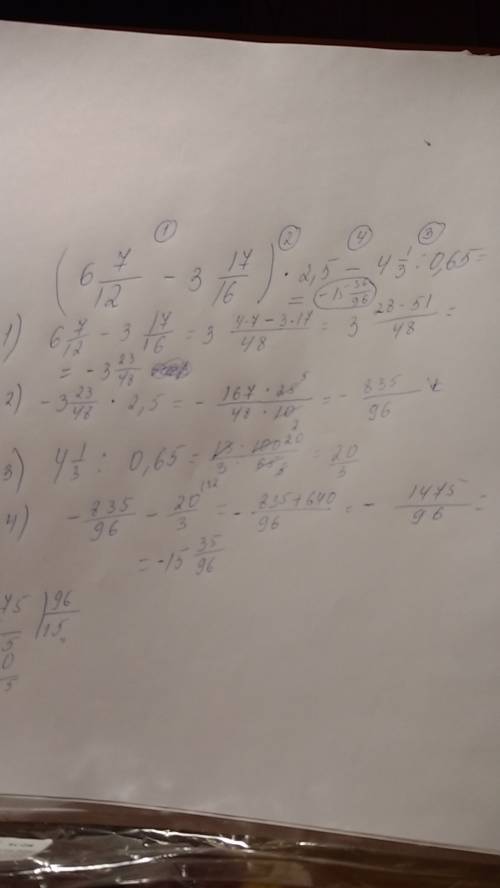 ① ② ④ ③
(6 7/12 − 3 17/16) · 2,5 − 4 1/3 : 0,65 =
= −15 35/96
1) 6 7/12 − 3 17/16 = 3 (4·7 − 3·17)/48 = 3 (28 − 51)/48 =
= −3 23/48
2) −3 23/48 · 2,5 = − (167 · 25 5)/(48 · 10 2) = − 835/96
3) 4 1/3 : 0,65 = (13 · 100 20)/(3 · 65) = 20/3
4) − 835/96 − 20/3 = − (835 + 640)/96 = − 1475/96 =
= −15 35/96
75 | 96
15